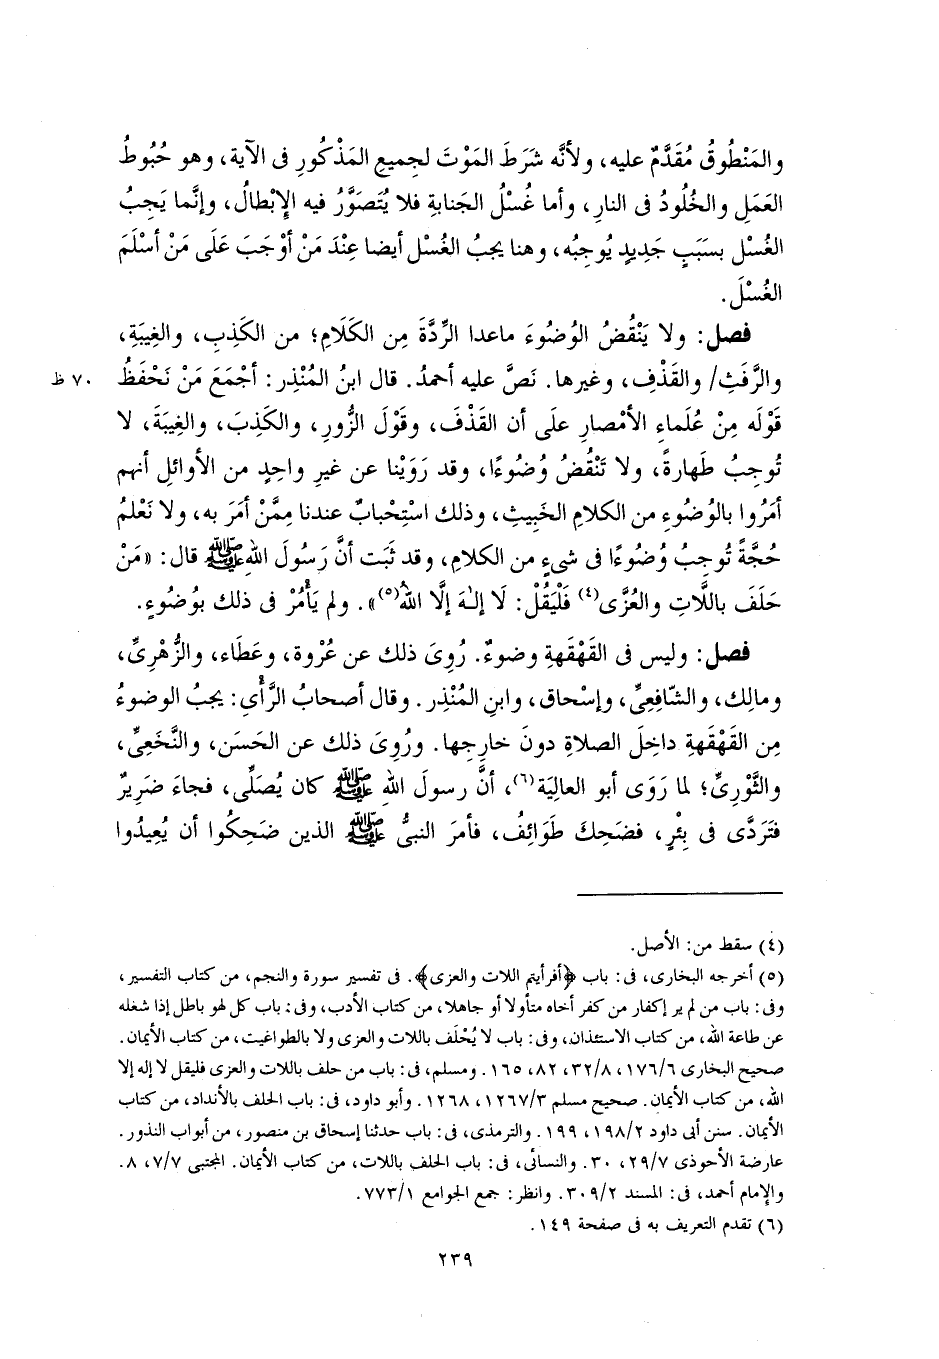 والمَنْطُوقُ مُقَدَّمٌ عليه، ولأنَّه شَرَطَ المَوْتَ لجميعِ المَذْكُورِ فى الآية، وهو حُبُوطُ
العَمَلِ والخُلُودُ فى النارِ، وأما غُسْلُ الجَنابةِ فلا يُتَصَوَّرُ فيه الإِبْطالُ، وإنَّما يَجِبُ
الغُسْل بسَبَبٍ جَديدٍ يُوجِبُه، وهنا يجبُ الغُسْل أيضا عِنْدَ مَنْ أوْجَبَ عَلَى مَنْ أسْلَمَ
الغُسْلَ.
فصل: ولا يَنْقُضُ الوُضُوءَ ماعدا الرِّدَّةَ مِن الكَلَامِ؛ من الكَذِبِ، والغِيبَةِ،
والرَّفَثِ/ والقَذْفِ، وغيرها. نَصَّ عليه أحمدُ. قال ابنُ المُنْذِر: أجْمَعَ مَنْ نَحْفَظُ ٧٠ ظ
قَوْلَه مِنْ عُلَماءِ الأمْصارِ علَى أن القَذْفَ، وقَوْلَ الزُّورِ، والكَذِبَ، والغِيبَةَ، لا
تُوجِبُ طَهارةً، ولا تَنْقُضُ وُضُوءًا، وقد رَوَيْنا عن غيرِ واحِدٍ من الأوائلِ أنهم
أمَرُوا بالوُضُوءِ من الكلامِ الخَبِيثِ، وذلك اسْتِحْبابٌ عندنا مِمَّنْ أمَرَ به، ولا نَعْلمُ
حُجَّةً تُوجِبُ وُضُوءًا فى شىءٍ من الكلامِ، وقد ثَبَت أنَّ رَسُولَ اللهِ ﷺ قال: «مَنْ
حَلَفَ باللَّاتِ والعُزَّى(٤) فَلْيَقُلْ: لَا إلـٰهَ إلَّا اللهُ(٥)». ولم يَأْمُرْ فى ذلك بوُضُوءٍ.
فصل: وليس فى القَهْقَهةِ وضوءٌ. رُوِىَ ذلك عن عُرْوة، وعَطَاء، والزُّهْرِىِّ،
ومالِك، والشّافِعِىِّ، وإسْحاق، وابنِ المُنْذِر. وقال أصحابُ الرَّأْىِ: يجبُ الوضوءُ
مِن القَهْقهةِ داخِلَ الصلاةِ دونَ خارِجِها. ورُوِىَ ذلك عن الحَسَن، والنَّخَعِىِّ،
والثَّوْرِىِّ؛ لما رَوَى أبو العالِيَة(٦)، أنَّ رسولَ اللهِ ﷺ كان يُصَلِّى، فجاءَ ضَرِيرٌ
فتَرَدَّى فى بِئْرٍ، فضَحِكَ طَوَائِفُ، فأمرَ النبىُّ ﷺ الذين ضَحِكُوا أن يُعِيدُوا
(٤) سقط من: الأصل.
(٥) أخرجه البخارى، فى: باب ﴿أفرأيتم اللات والعزى﴾. فى تفسير سورة والنجم، من كتاب التفسير،
وفى: باب من لم ير إكفار من كفر أخاه متأولا أو جاهلا، من كتاب الأدب، وفى: باب كل لهو باطل إذا شغله
عن طاعة الله، من كتاب الاستئذان، وفى: باب لا يُحْلَف باللات والعزى ولا بالطواغيت، من كتاب الأيمان.
صحيح البخارى ١٧٦/٦، ٣٢/٨، ٨٢، ١٦٥. ومسلم، فى: باب من حلف باللات والعزى فليقل لا إله إلا
الله، من كتاب الأيمان. صحيح مسلم ١٢٦٧/٣، ١٢٦٨. وأبو داود، فى: باب الحلف بالأنداد، من كتاب
الأيمان. سنن أبى داود ١٩٨/٢، ١٩٩. والترمذى، فى: باب حدثنا إسحاق بن منصور، من أبواب النذور.
عارضة الأحوذى ٢٩/٧، ٣٠. والنسائى، فى: باب الحلف باللات، من كتاب الأيمان. المجتبى ٧/٧، ٨.
والإمام أحمد، فى: المسند ٣٠٩/٢. وانظر: جمع الجوامع ٧٧٣/١.
(٦) تقدم التعريف به فى صفحة ١٤٩.
٢٣٩